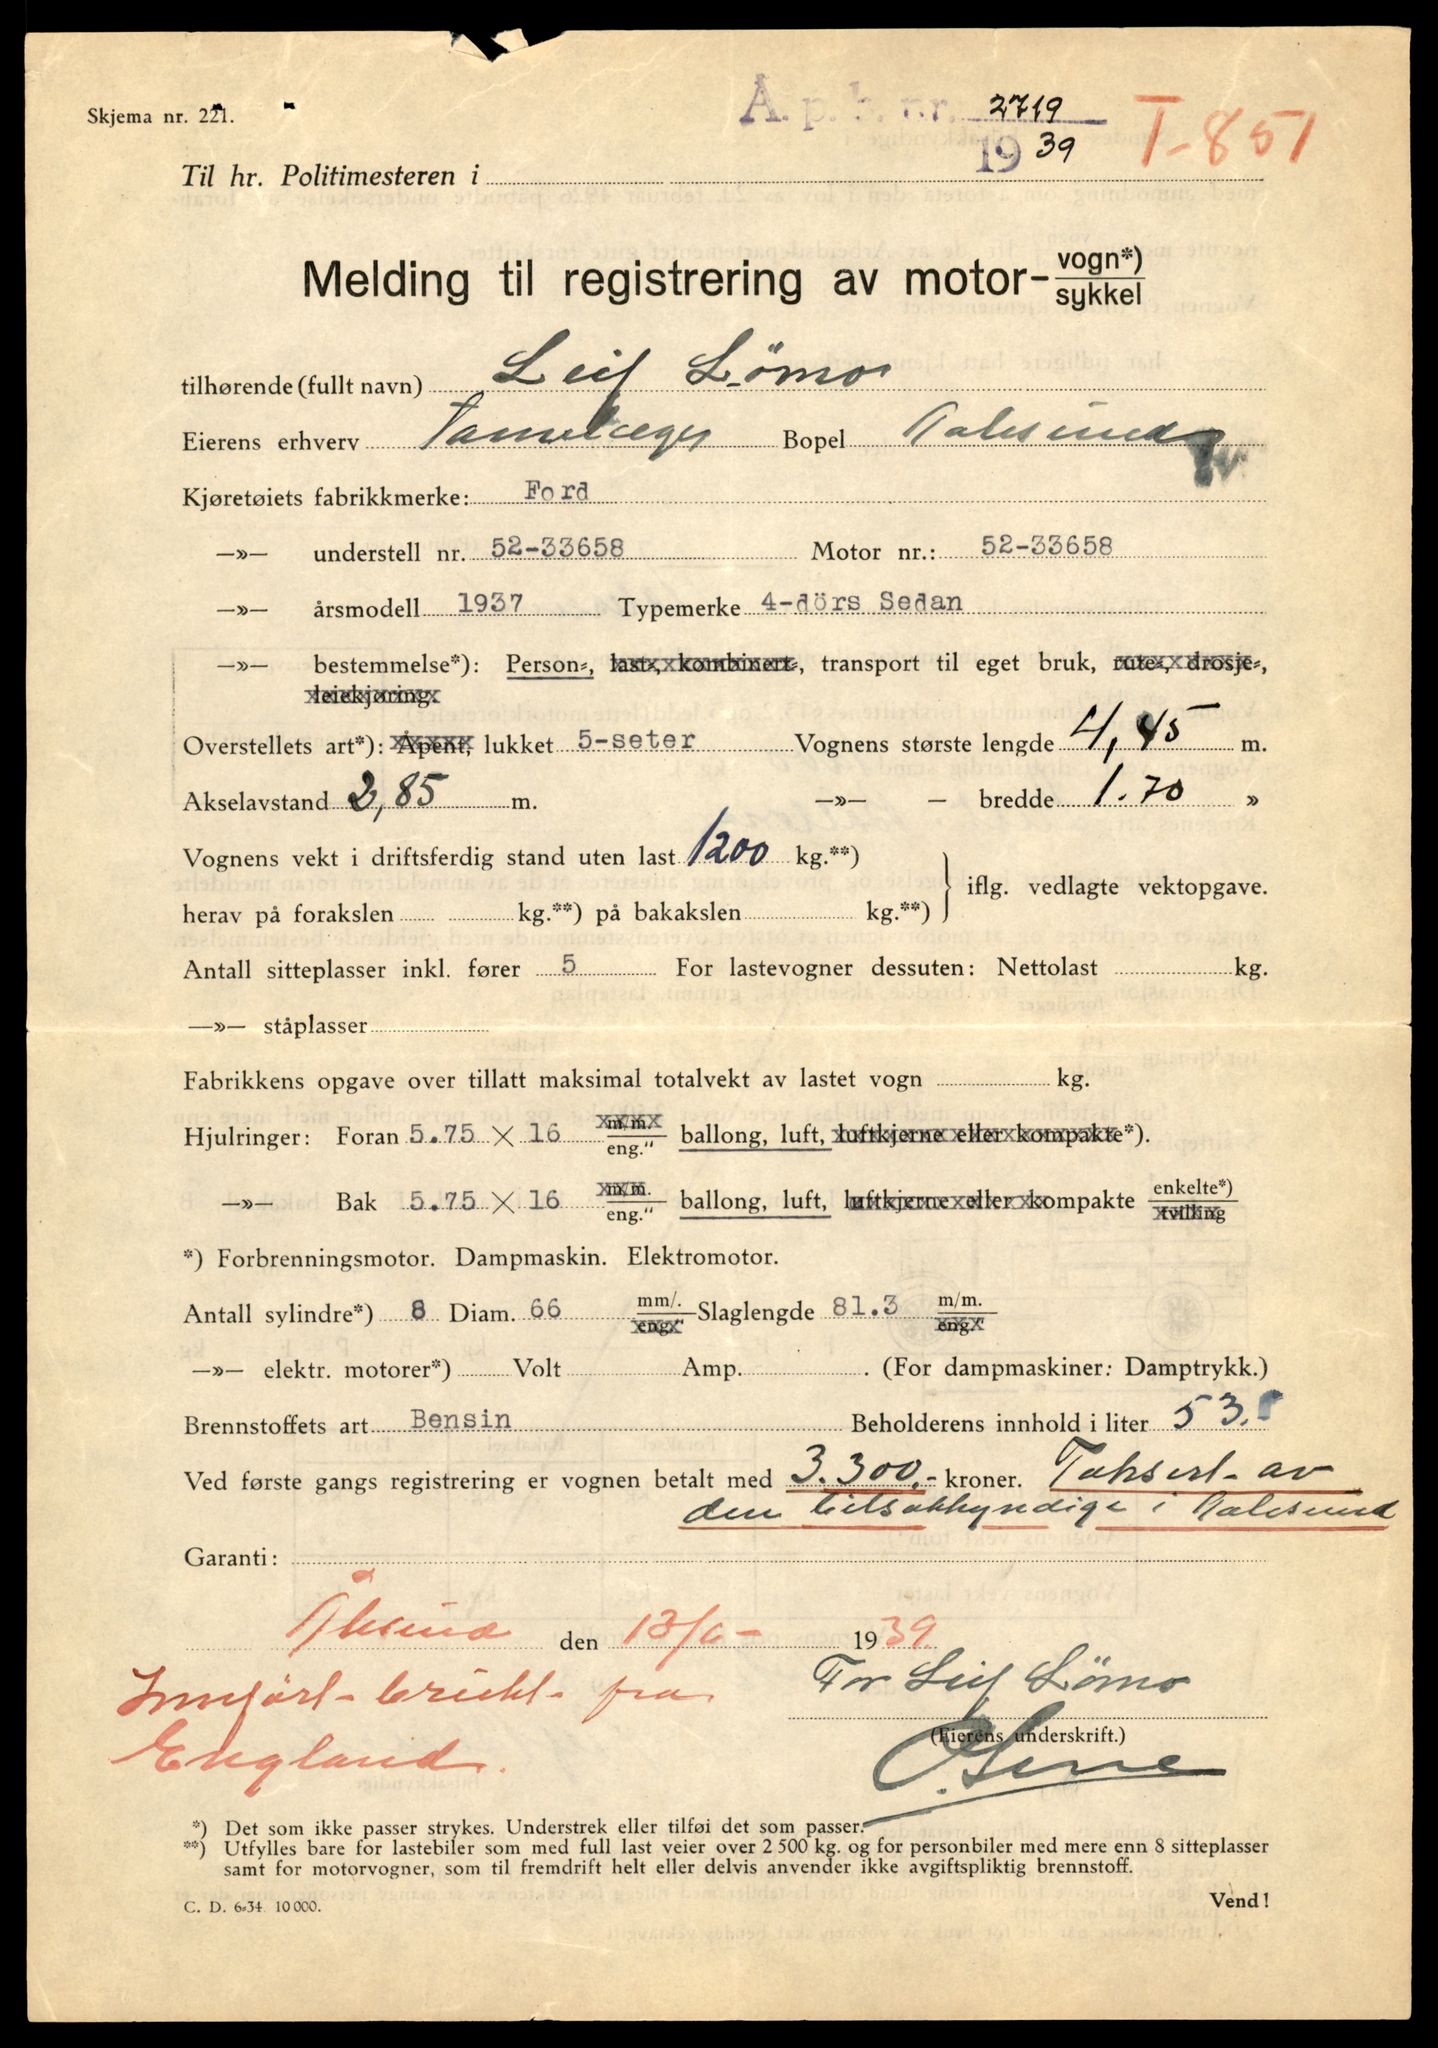 Skjema nr. 221.
A. p. k. nr. 2719
1939
T-851
Til hr. Politimesteren i
Melding til registrering av motor- vogn*) / sykkel
tilhørende (fullt navn) Leif Lömo
Eierens erhverv Tannlæge Bopel Aalesund
Kjøretøiets fabrikkmerke: Ford
—»— understell nr. 52-33658 Motor nr.: 52-33658
—»— årsmodell 1937 Typemerke 4-dörs Sedan
—»— bestemmelse*): Person-, last-, kombinert-, transport til eget bruk, rute-, drosje-,
leiekjøring.
Overstellets art*): Åpent, lukket 5-seter Vognens største lengde 4,45 m.
Akselavstand 2,85 m. —»— — bredde 1.70 »
Vognens vekt i driftsferdig stand uten last 1200 kg.**)
herav på forakslen kg.**) på bakakslen kg.**) iflg. vedlagte vektopgave.
Antall sitteplasser inkl. fører 5 For lastevogner dessuten: Nettolast kg.
—»— ståplasser
Fabrikkens opgave over tillatt maksimal totalvekt av lastet vogn kg.
Hjulringer: Foran 5.75 X 16 m/m. / eng." ballong, luft, luftkjerne eller kompakte*).
—»— Bak 5.75 X 16 m/m. / eng." ballong, luft, luftkjerne eller kompakte enkelte*) / tvilling
*) Forbrenningsmotor. Dampmaskin. Elektromotor.
Antall sylindre*) 8 Diam. 66 mm/. / eng." Slaglengde 81.3 m/m. / eng."
—»— elektr. motorer*) Volt Amp. . (For dampmaskiner: Damptrykk.)
Brennstoffets art Bensin Beholderens innhold i liter 53.
Ved første gangs registrering er vognen betalt med 3.300.- kroner. Taksert av
den bilsakkyndige i Aalesund
Garanti:
Ålesund den 13/6- 1939.
Innført brukt fra
England.
For Leif Lömo
(Eierens underskrift.)
*) Det som ikke passer strykes. Understrek eller tilføi det som passer.
**) Utfylles bare for lastebiler som med full last veier over 2 500 kg. og for personbiler med mere enn 8 sitteplasser
samt for motorvogner, som til fremdrift helt eller delvis anvender ikke avgiftspliktig brennstoff.
C. D. 6-34. 10 000.
Vend!